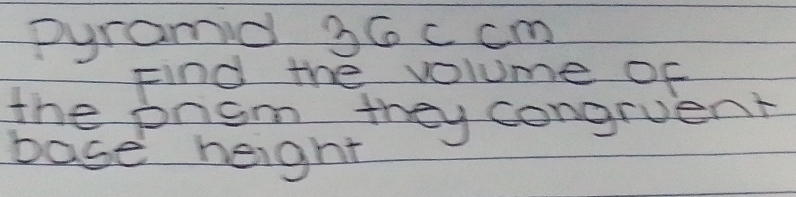 pyramid 36 c cm
Find the volume of
the prism they congruent
base height